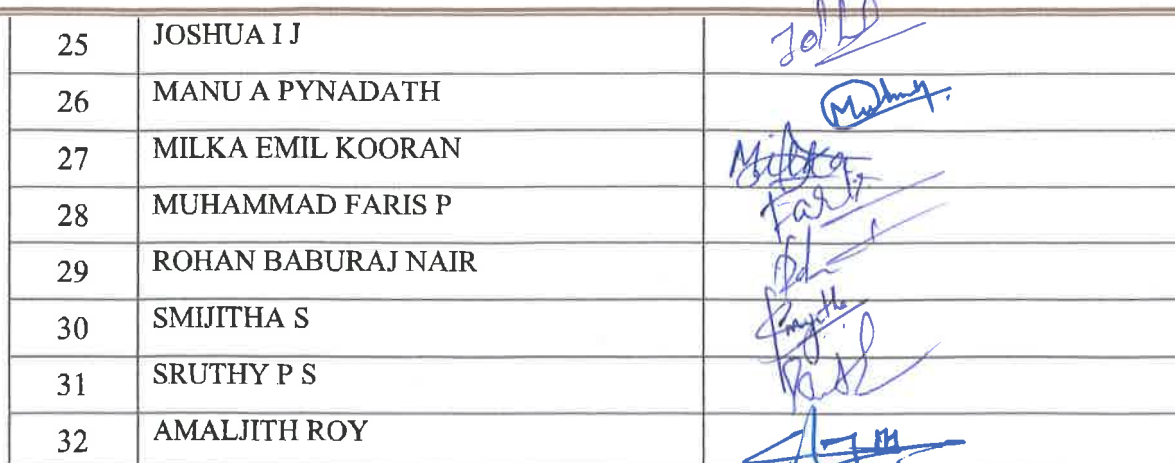 25 JOSHUA I J
26 MANU A PYNADATH
27 MILKA EMIL KOORAN Milka
28 MUHAMMAD FARIS P Faris
29 ROHAN BABURAJ NAIR
30 SMIJITHA S Smijitha
31 SRUTHY P S
32 AMALJITH ROY